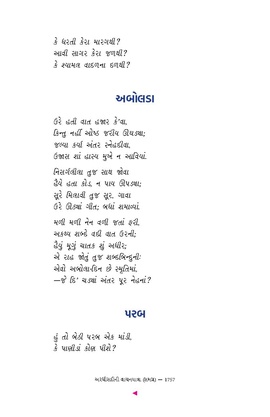 કે ધરતી કેરા મારગથી?
આવી સાગર કેરા જળથી?
કે શ્યામલ વાદળના દળથી?
અબોલડા
ઉરે હતી વાત હજાર કે'વા,
કિન્તુ નહીં ઓષ્ઠ જરીય ઊઘડ્યા;
જળ્યા કર્યા અંતર સ્નેહદીવા,
ઉજાસ શાં હાસ્ય મુખે ન આવિયાં.
નિસર્ગલીલા તુજ સાથ જોવા
હૈયે હતા કોડ, ન પાય ઊપડ્યા;
સૂરે મિલાવી તુજ સૂર, ગાવા
ઉરે ઊઠ્યાં ગીત; બધાં શમાવ્યાં.
મળી મળી નેન વળી જતાં ફરી,
અકથ્ય શબ્દે વદી વાત ઉરની;
હૈયું મૂગું ચાતક શું અધીર;
એ રાહ જોતું તુજ શબ્દબિન્દુની:
એવો અબોલા-દિન છે સ્મૃતિમાં,
—જે દિ' ચડ્યાં અંતર પૂર નેહનાં?
પરબ
હું તો બેઠી પરબ એક માંડી,
કે પાણીડાં કોણ પીશે?
— 1757